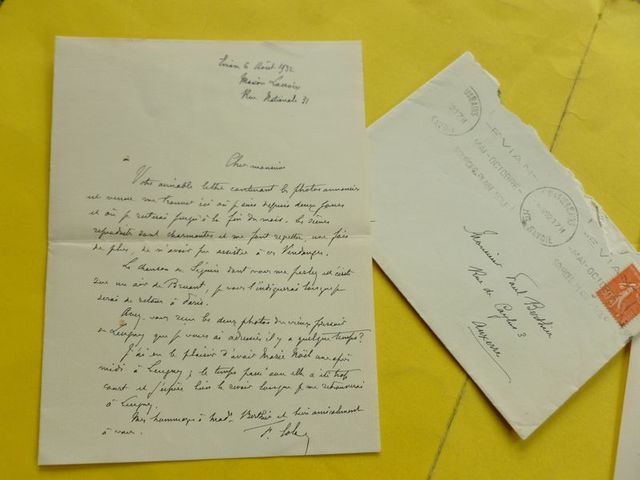 Evian 6 Août 1932
Maison Lacroix
Rue Nationale 31
Cher monsieur
Votre aimable lettre contenant les photos annoncées
vient me trouver ici où je suis depuis deux jours
et où je resterai jusqu'à la fin du mois. Les scènes
reproduites sont charmantes et me font regretter, une fois
de plus, de n'avoir pu assister à ces Vendanges.
La chanson de dont vous me parlez est écrite
sur un air de Bruant, je vous l'indiquerai lorsque je
serai de retour à Paris.
Avez-vous reçu les deux photos du vieux pressoir
de que je vous ai adressées il y a quelque temps?
J'ai eu le plaisir d'avoir Marie Noël une après
midi à ; le temps passé avec elle a été trop
court et j'espère bien la revoir lorsque je me retrouverai
à
Mes hommages à Mad. Berthier et bien amicalement
à vous.
EVIAN
MAI-OCTOBRE
EVIAN
MAI-OCTOBRE
Monsieur Paul Berthier
Rue de 3
Auxerre